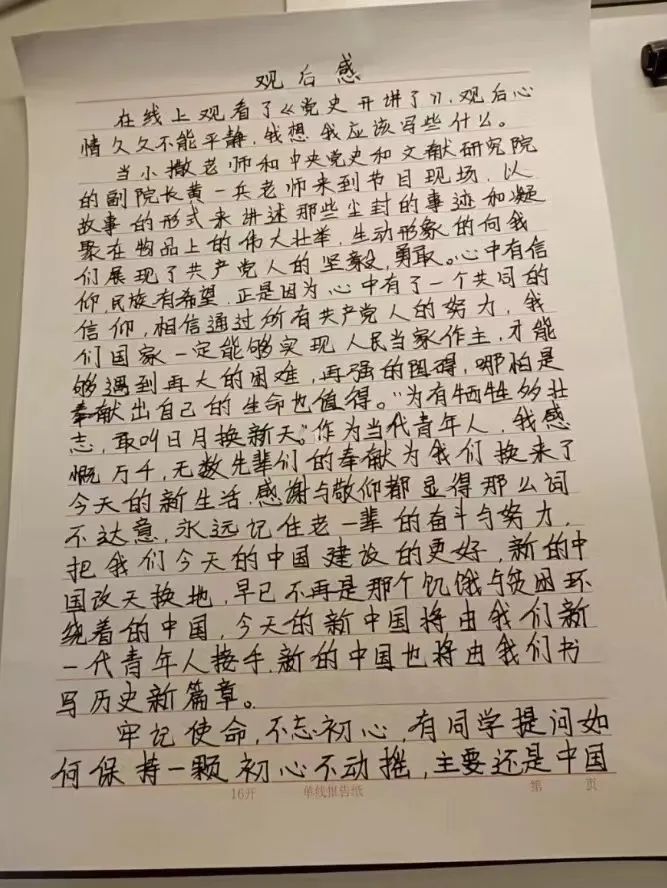 观后感
在线上观看了《党史开讲了》，观后心
情久久不能平静，我想我应该写些什么。
当小撒老师和中央党史和文献研究院
的副院长黄一兵老师来到节目现场，以
故事的形式来讲述那些尘封的事迹和凝
聚在物品上的伟大壮举，生动形象的向我
们展现了共产党人的坚毅，勇敢。心中有信
仰，民族有希望，正是因为心中有了一个共同的
信仰，相信通过所有共产党人的努力，我
们国家一定能够实现人民当家作主，才能
够遇到再大的困难，再强的阻碍，哪怕是
奉献出自己的生命也值得。"为有牺牲多壮
志，敢叫日月换新天。"作为当代青年人，我感
慨万千，无数先辈们的奉献为我们换来了
今天的新生活，感谢与敬仰都显得那么词
不达意，永远记住老一辈的奋斗与努力，
把我们今天的中国建设的更好，新的中
国改天换地，早已不再是那个饥饿与贫困环
绕着的中国，今天的新中国将由我们新
一代青年人接手，新的中国也将由我们书
写历史新篇章。
牢记使命，不忘初心，有同学提问如
何保持一颗初心不动摇，主要还是中国
16开 单线报告纸 第 页